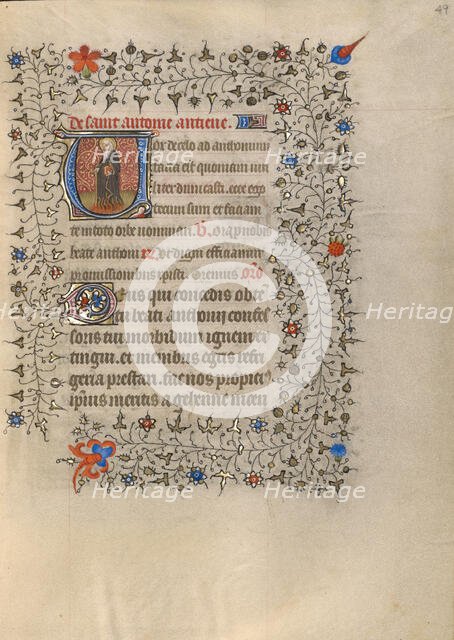 49
De saint antoine antiene.
Vox de celo ad anthonium
facta est quoniam viri
liter dimicasti. ecce ego
tecum sum et faciam
te in toto orbe nominari. V. Ora p nobis
beate anthoni R. Ut digni efficiamur
promissionibus xpisti. Oremus oro
Deus qui concedis obte
tu beati anthonij confes
soris tui morbidum ignem ex
tingui. et membris egris refri
geria prestari. fac nos propicius
ipius meritis a gehenne incen
Heritage
Heritage
Heritage
Heritage
Heritage
Heritage
Heritage